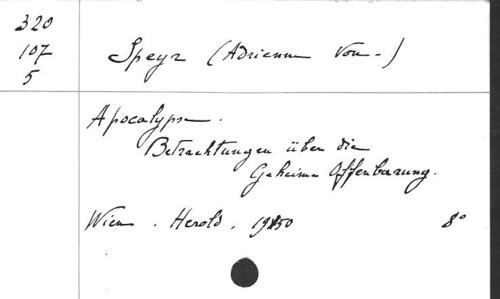 320
107
5
Speyr (Adrienne von-)
Apocalypse.
Betrachtungen über die
Geheime Offenbarung.
Wien. Herold. 1950 8°